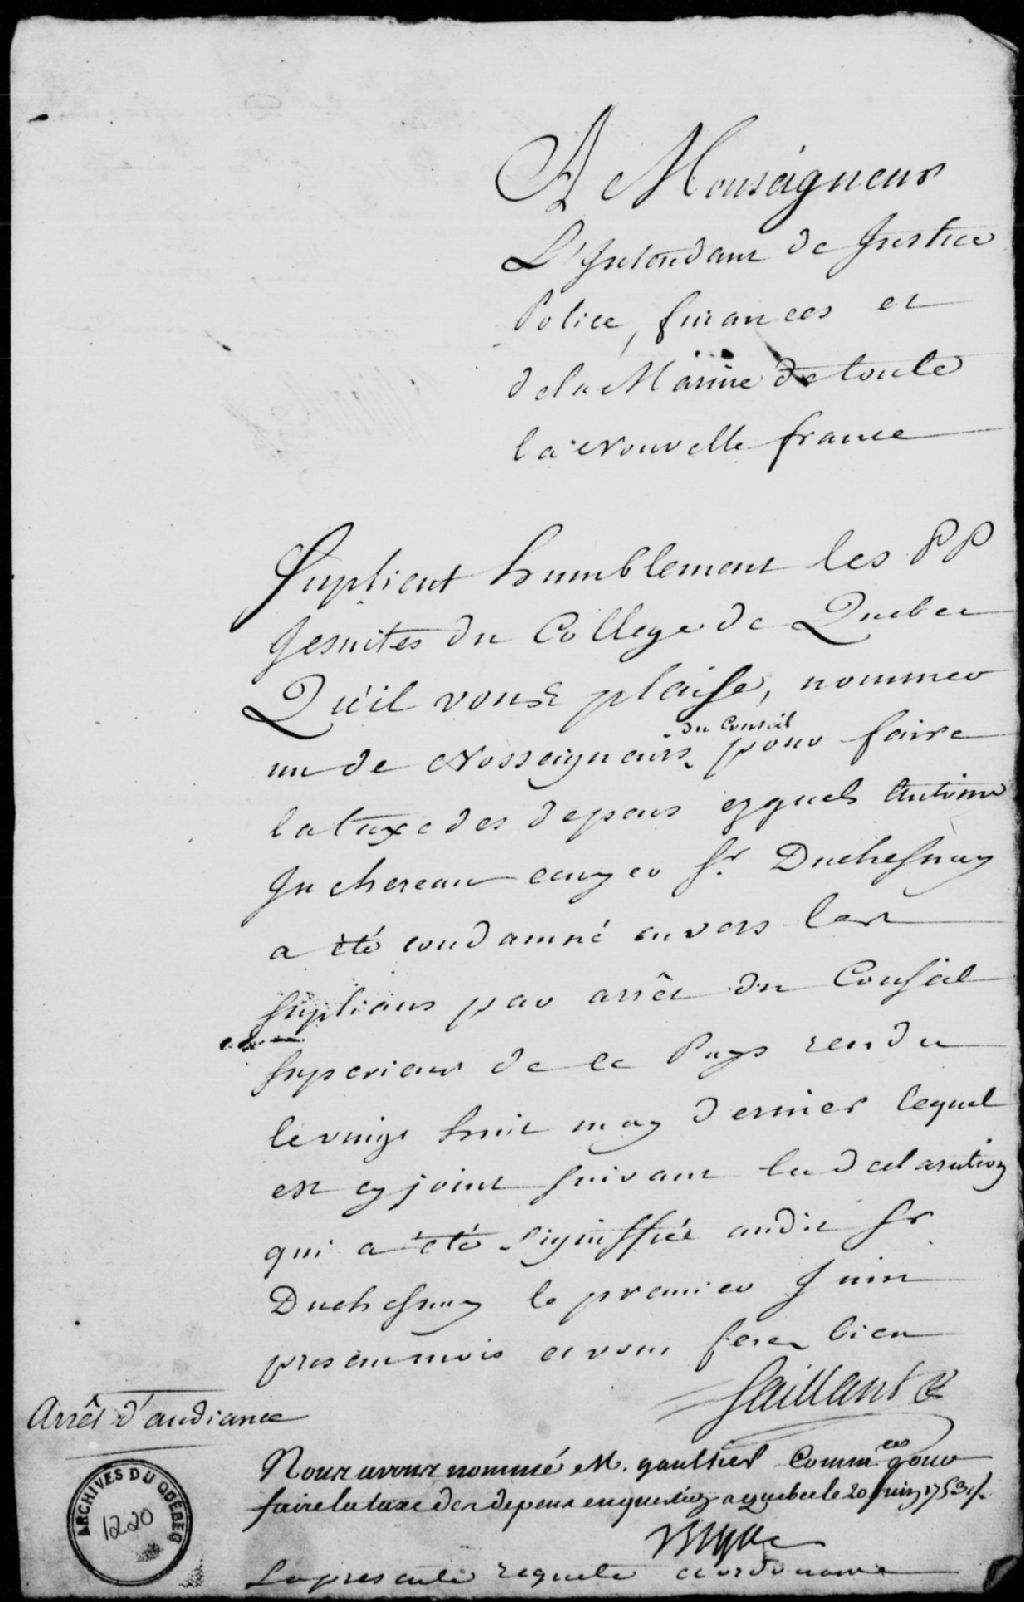 A Monseigneur
L'Intendant de Justice
Police, finances et
de la Marine de toute
la Nouvelle france
Suplient humblement les PP
Jesuites du College de Quebec
Qu'il vous plaise, nommer
un de Nosseigneurs du Conseil pour faire
la taxe des depens esquels Antoine
Juchereau ecuyer Sr. Duchesnay
a été condamné envers les
suplians par arrêt du Conseil
Superieur de ce Pays rendu
le vingt huit may dernier lequel
est cy joint suivant la declaration
qui a été signiffiée audit Sr
Duchesnay le premier Juin
present mois et vous ferez bien
Saillant
Arrêt d'audiance
Nous avons nommé M. gaultier Commre pour
faire la taxe des depens en question a quebec le 20 Juin 1753
Bigot
La presente requete et ordonnance
ARCHIVES DU QUÉBEC
1220